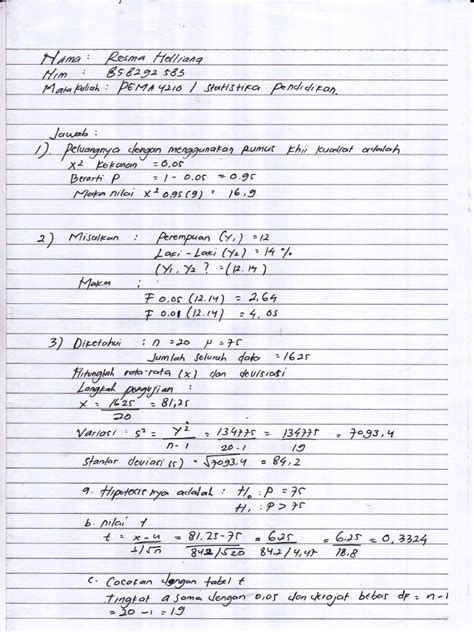 Nama : Resma Helliana
Nim : 858292583
Mata Kuliah : PEMA4210 / Statistika Pendidikan.
Jawab :
1). Peluangnya dengan menggunakan rumus khii kuadrat adalah
X² Kekanan = 0,05
Berarti P = 1 - 0.05 = 0.95
Maka nilai X² 0,95(9) = 16.9
2) Misalkan : Perempuan (Y1) = 12
Laki - Laki (Y2) = 14 %
(Y1, Y2 ? = (12.14)
Maka :
F 0,05 (12.14) = 2,64
F 0.01 (12.14) = 4,05
3) Diketahui : n = 20 μ = 75
Jumlah seluruh data = 1625
Hitunglah rata-rata (x) dan devisiasi
Langkah pengujian :
x = 1625/20 = 81,25
Variasi : s² = y²/n-1 = 134775/20-1 = 134775/19 = 7093,4
Stantar deviasi (s) = √7093,4 = 84,2
a. Hipotesis nya adalah : H₀ : P = 75
H₁ : P > 75
b. nilai t
t = x-u/s/√n = 81,25-75/842/√20 = 6.25/84.2/4,47 = 6.25/18.8 = 0,3324
c. Cocokan dengan tabel t
Tingkat a sama dengan 0,05 dan derajat bebas df = n-1
= 20 - 1 = 19